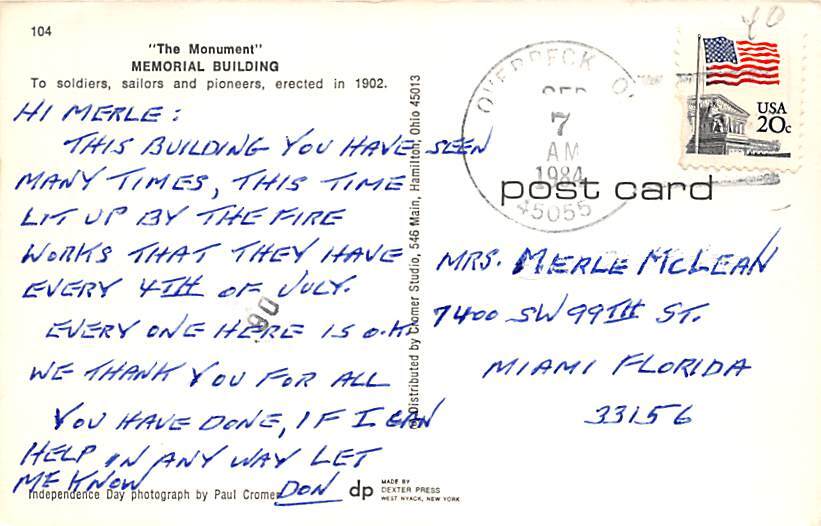 104
"The Monument"
MEMORIAL BUILDING
To soldiers, sailors and pioneers, erected in 1902.
HI MERLE:
THIS BUILDING YOU HAVE SEEN
MANY TIMES, THIS TIME
LIT UP BY THE FIRE
WORKS THAT THEY HAVE
EVERY 4TH OF JULY.
EVERY ONE HERE IS O.K.
WE THANK YOU FOR ALL
YOU HAVE DONE, IF I CAN
HELP IN ANY WAY LET
ME KNOW DON
Independence Day photograph by Paul Cromer
Distributed by Cromer Studio, 546 Main, Hamilton, Ohio 45013
dp
MADE BY
DEXTER PRESS
WEST NYACK, NEW YORK
OVERPECK O
SEP
7
AM
1984
45055
USA
20c
40
90
post card
MRS. MERLE McLEAN
7400 SW 99TH ST.
MIAMI FLORIDA
33156